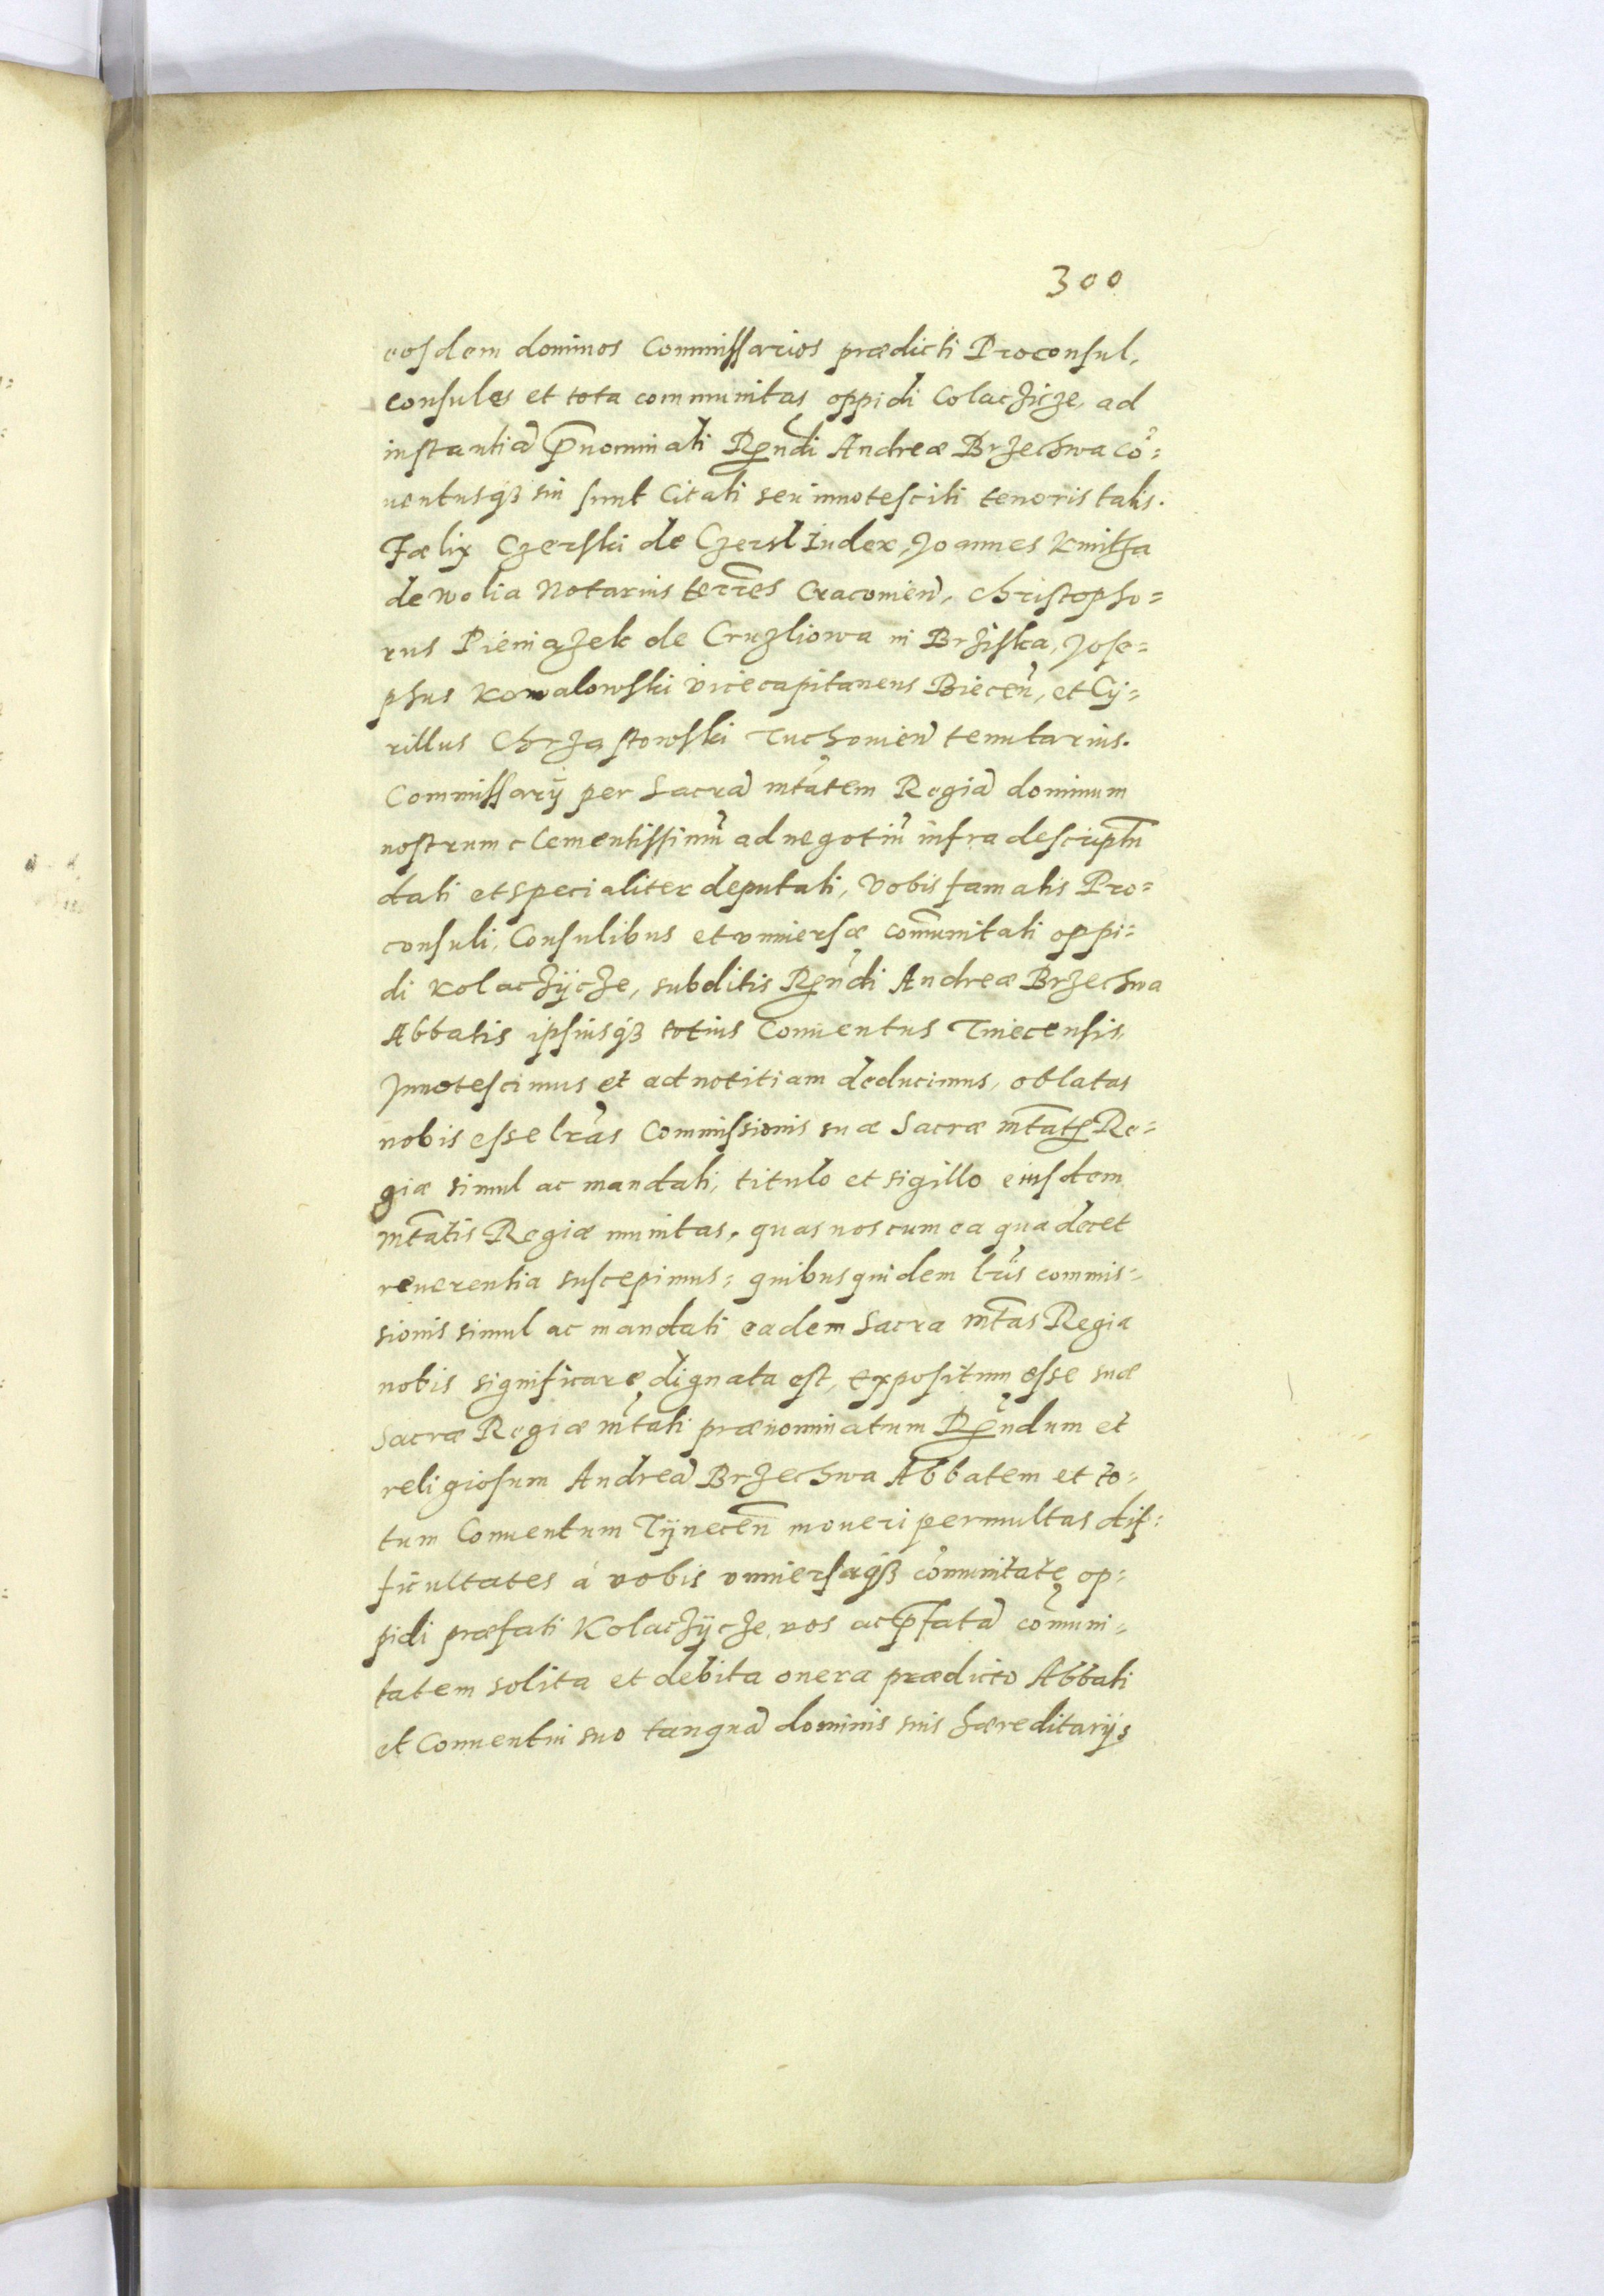 300
eosdem dominos Commissarios prædicti Proconsul,
consules et tota communitas oppidi Colaczicze, ad
instantiã p̃nominati Rṇ̃di Andreæ Brzechwa Cõ=
uentusq́₃ sui sunt Citati seu innotesciti tenoris talis.
Fælix Czerski de Czersk Iudex, Joannes Kmitha
de Wolia Notarius terrẽs Cracouieñ, Christopho=
rus Pieniążek de Cruzliowa in Brziska, Jose=
phus Kowalowski vicecapitaneus Bieceñ, et Cy=
rillus Chrząstowski Tuchouieñ tenutarius.
Commissarij per Sacrã mtãtem Regiã dominum
nostrum clementissimũ ad negotiũ infra descriptũ
dati et specialiter deputati, Vobis famatis Pro=
consuli, Consulibus et vniuersæ com̃unitati oppi=
di Kolaczÿcze, subditis Rṇ̃di Andreæ Brzechwa
Abbatis ipsiusq́₃ totius Conuentus Tinecensis,
Jnnotescimus et ad notitiam deducimus, oblatas
nobis esse lr̃as Commissionis suæ Sacræ mtãtis Re=
giæ simul ac mandati, titulo et sigillo eiusdem
mtãtis Regiæ munitas, quas nos cum ea qua decet
reuerentia suscepimus: quibus quidem lr̃is commis=
sionis simul ac mandati eadem Sacra mtãs Regia
nobis significare dignata est, expositum esse suæ
Sacræ Regiæ mtãti prænominatum Rṇ̃dum et
religiosum Andreã Brzechwa Abbatem et to=
tum Conuentum Tÿneceñ moueri permultas dif=
ficultates à vobis vniuersaq́₃ com̃unitate op=
pidi præfati Kolaczÿcze, vos ac p̃fatã com̃uni=
tatem solita et debita onera prædicto Abbati
et Conuentui suo tanquã dominis suis hæreditarijs